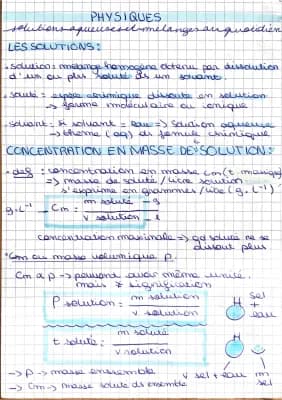 PHYSIQUES
solutions aqueuses et mélanges au quotidien
LES SOLUTIONS :
• solution : mélange homogène obtenu par dissolution
d'un ou plus soluté ds un solvant.
• soluté : espèce chimique dissoute en solution
→ forme moléculaire ou ionique
• solvant : si solvant = eau => solution aqueuse
→ thème (aq) ds formule chimique
CONCENTRATION EN MASSE DE SOLUTION :
• def : concentration en masse Cm (t manip)
=> masse de soluté / litre solution
s'exprime en grammes / litre (g.L⁻¹)
g.L⁻¹ — Cm = m soluté — g
v solution — L
concentration maximale => qd soluté ne se
dissout plus
• Cm ou masse volumique ρ.
Cm et ρ → peuvent avoir même unité.
mais ≠ signification
ρ solution = m solution
v solution
sel
+
eau
t soluté = m soluté
v solution
v sel + eau
m
sel
→ ρ → masse ensemble
→ Cm → masse soluté ds ensemble